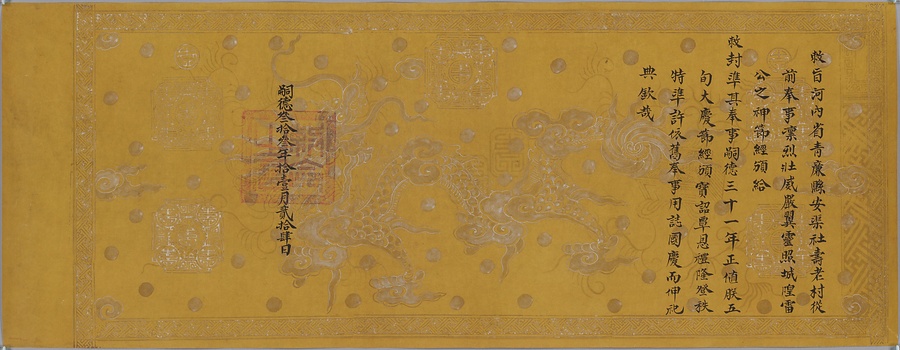 敕旨河內省青廉縣安渠社壽老村從
前奉事凛烈壯威嚴翼靈照城隍雷
公之神節經頒給
敕封準其奉事嗣德三十一年正值朕五
旬大慶節經頒寶詔覃恩禮隆登秩
特準許依舊奉事用誌國慶而伸祀
典欽哉
嗣德叁拾叁年拾壹月貳拾肆日